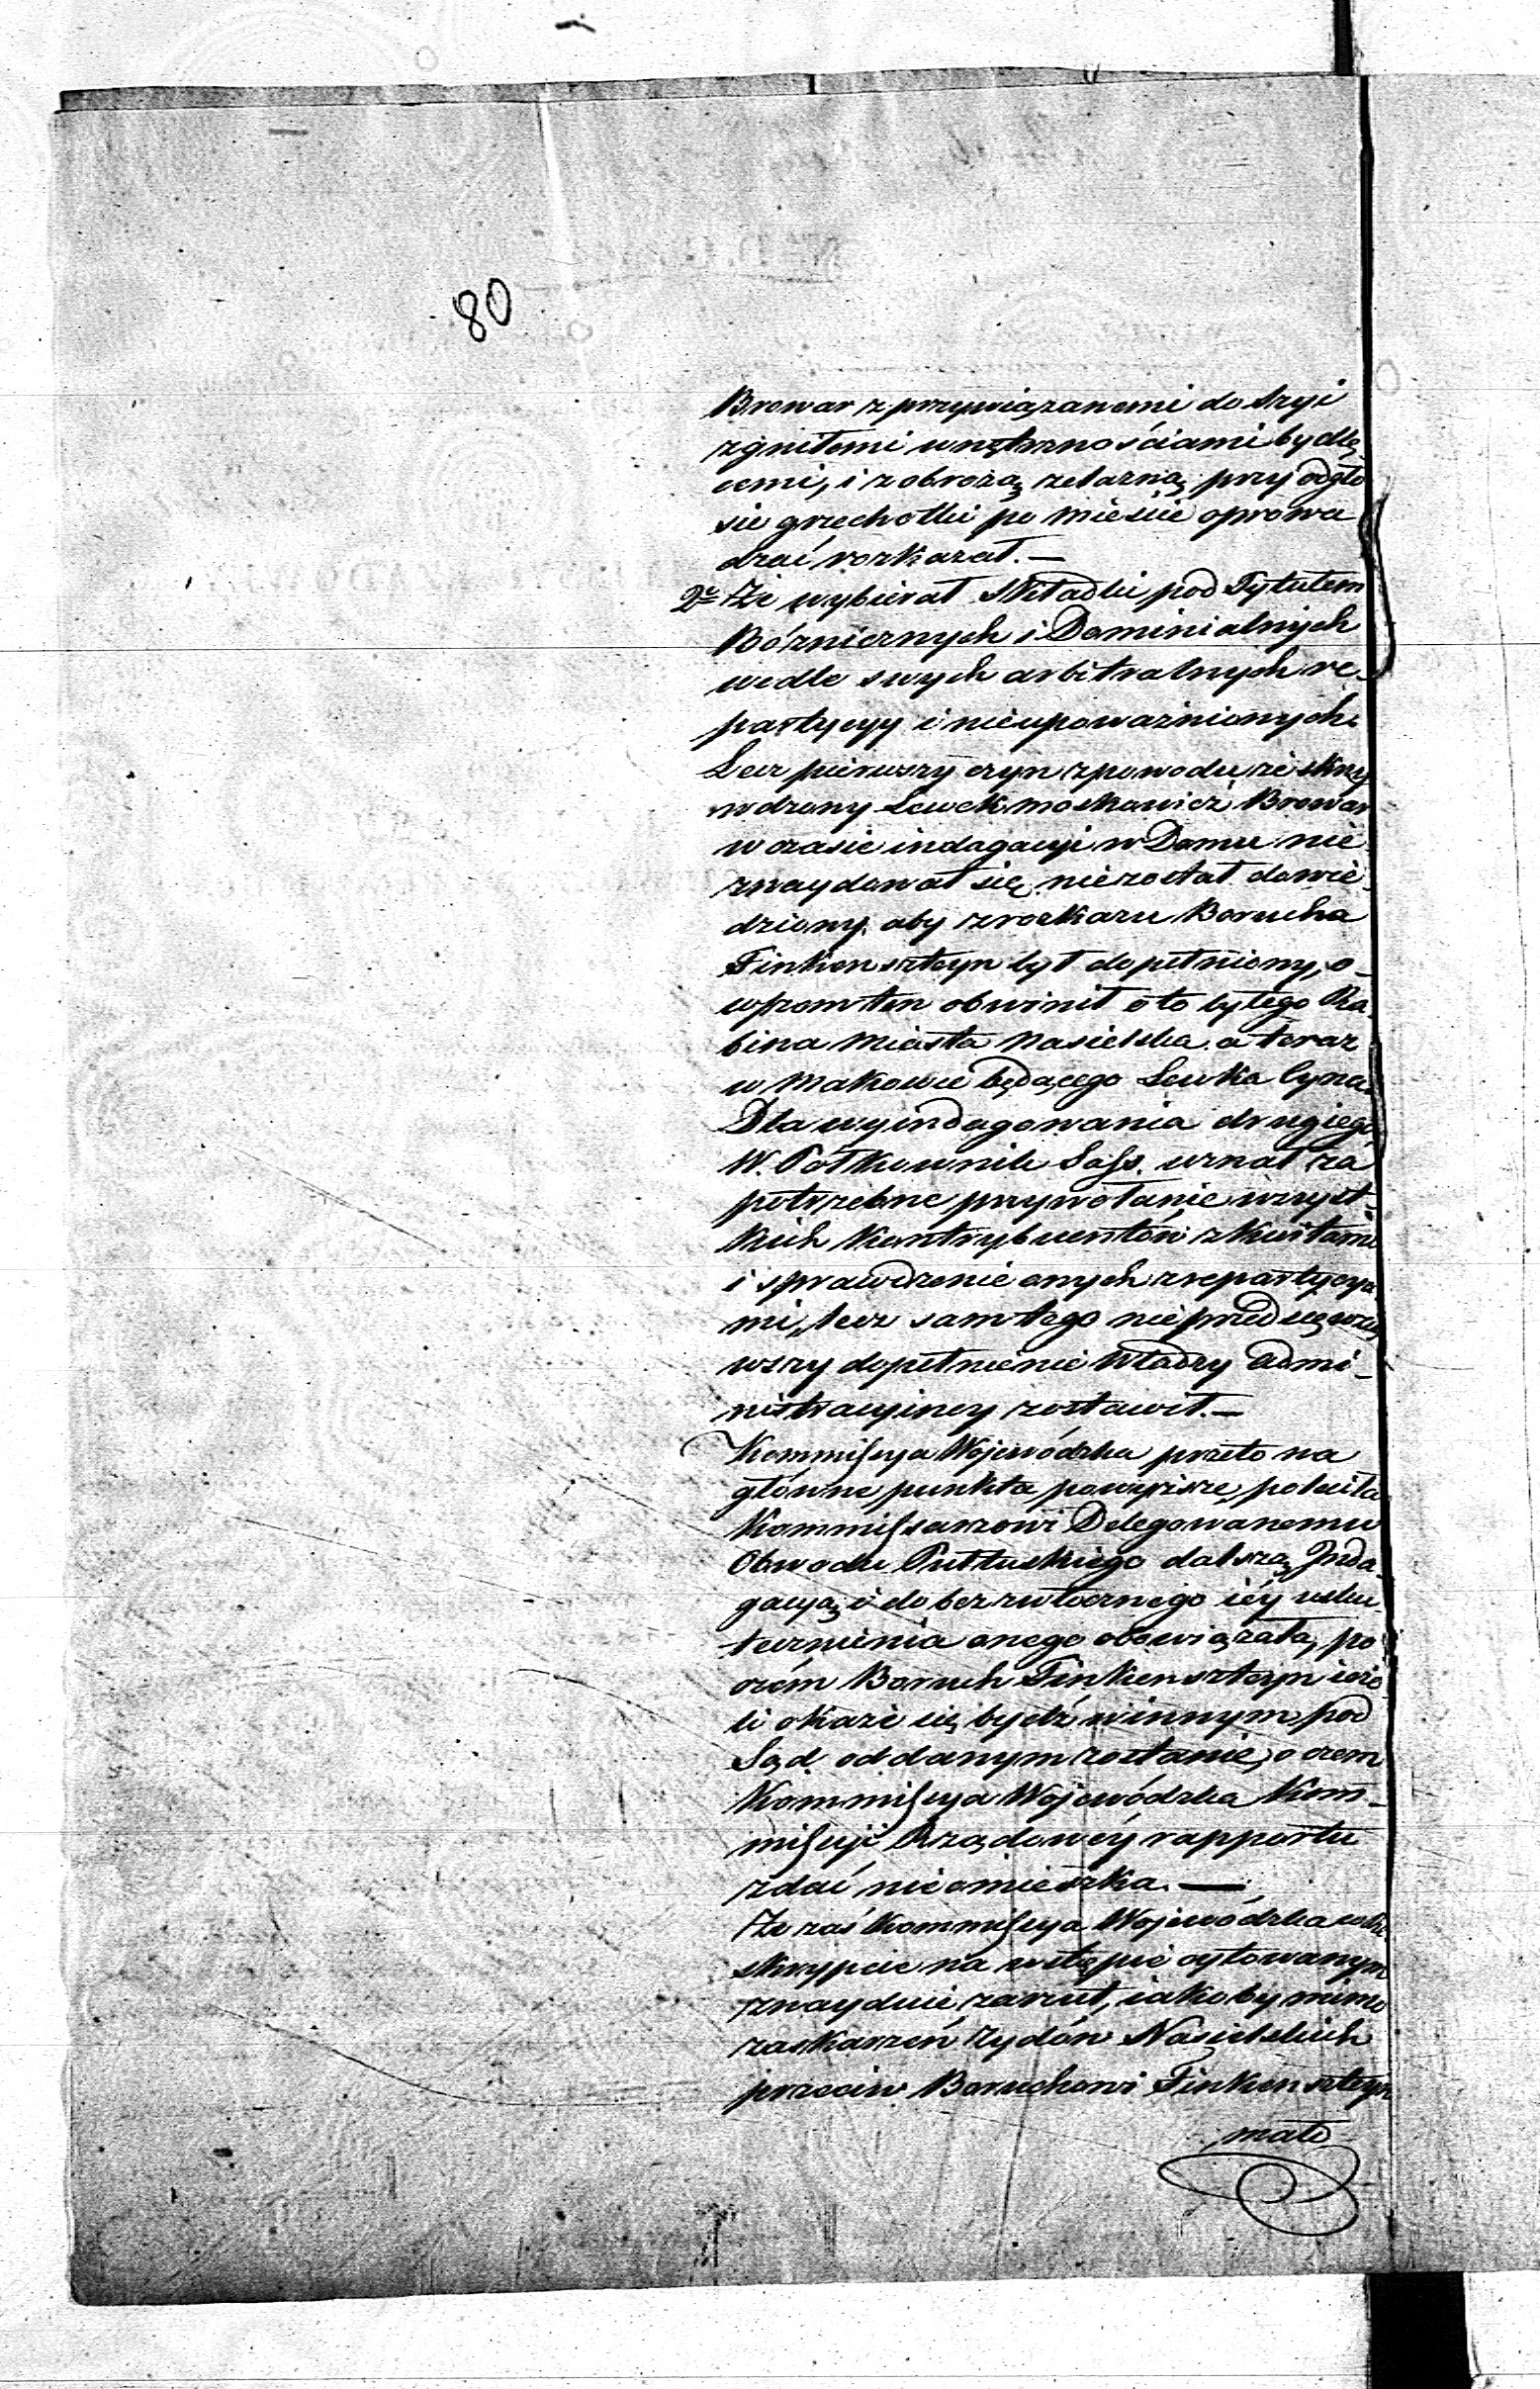 80
Browar z przywiązanemi do szyi
zgniłemi wnętrznościami bydlę
cemi, i z obrożą żelazną przy odgło
sie grzechotki po mieście oprowa
dzać rozkazał. —
2e Że wybierał składki pod Tytułem
Bóżnicznych i Dominialnych
wedle swych arbitralnych re-
partycyy i nieupoważnionych.
Lecz pierwszy czyn z powodu że skrzy
wdzony Lewek Moskowicz Browar
w czasie indagacyi w Domu nie
znaydował się, nie został dowie-
dziony, aby z rozkazu Borucha
Finkenszteyn był dopełniony, o-
wszem ten obwinił o to byłego Ra
bina Miasta Nasielska a teraz
w Makowie będącego Lewka Cyna.
Dla wyindagowania drugiego
W. Półkownik Sass. uznał za
potrzebne przywołanie wszyst-
kich kontrybuentów z kwitami
i sprawdzenie onych z repartycya
mi, lecz sam tego nie przedsięwzią
wszy dopełnienie Władzy Admi-
nistracyiney zostawił. —
Kommissya Wojewódzka przeto na
główne punkta powyższe, poleciła
Kommissarzowi Delegowanemu
Obwodu Pułtuskiego dalszą Inda-
gacyą i do bezzwłocznego iéy usku-
tecznienia onego obowiązała, po
czém Boruch Finkenszteyn ieże
li okaże się bydź winnym pod
Sąd oddanym zostanie, o czem
Kommissya Wojewódzka Kom-
missyi Rządowéy rapportu
zdać nieomieszka. —
Że zaś Kommissya Wojewódzka w Re-
skrypcie na wstępie cytowanym
znayduie zarzut, iakoby mimo
zaskarżeń Żydów Nasielskich
przeciw Boruchowi Finkenszteyn
mało